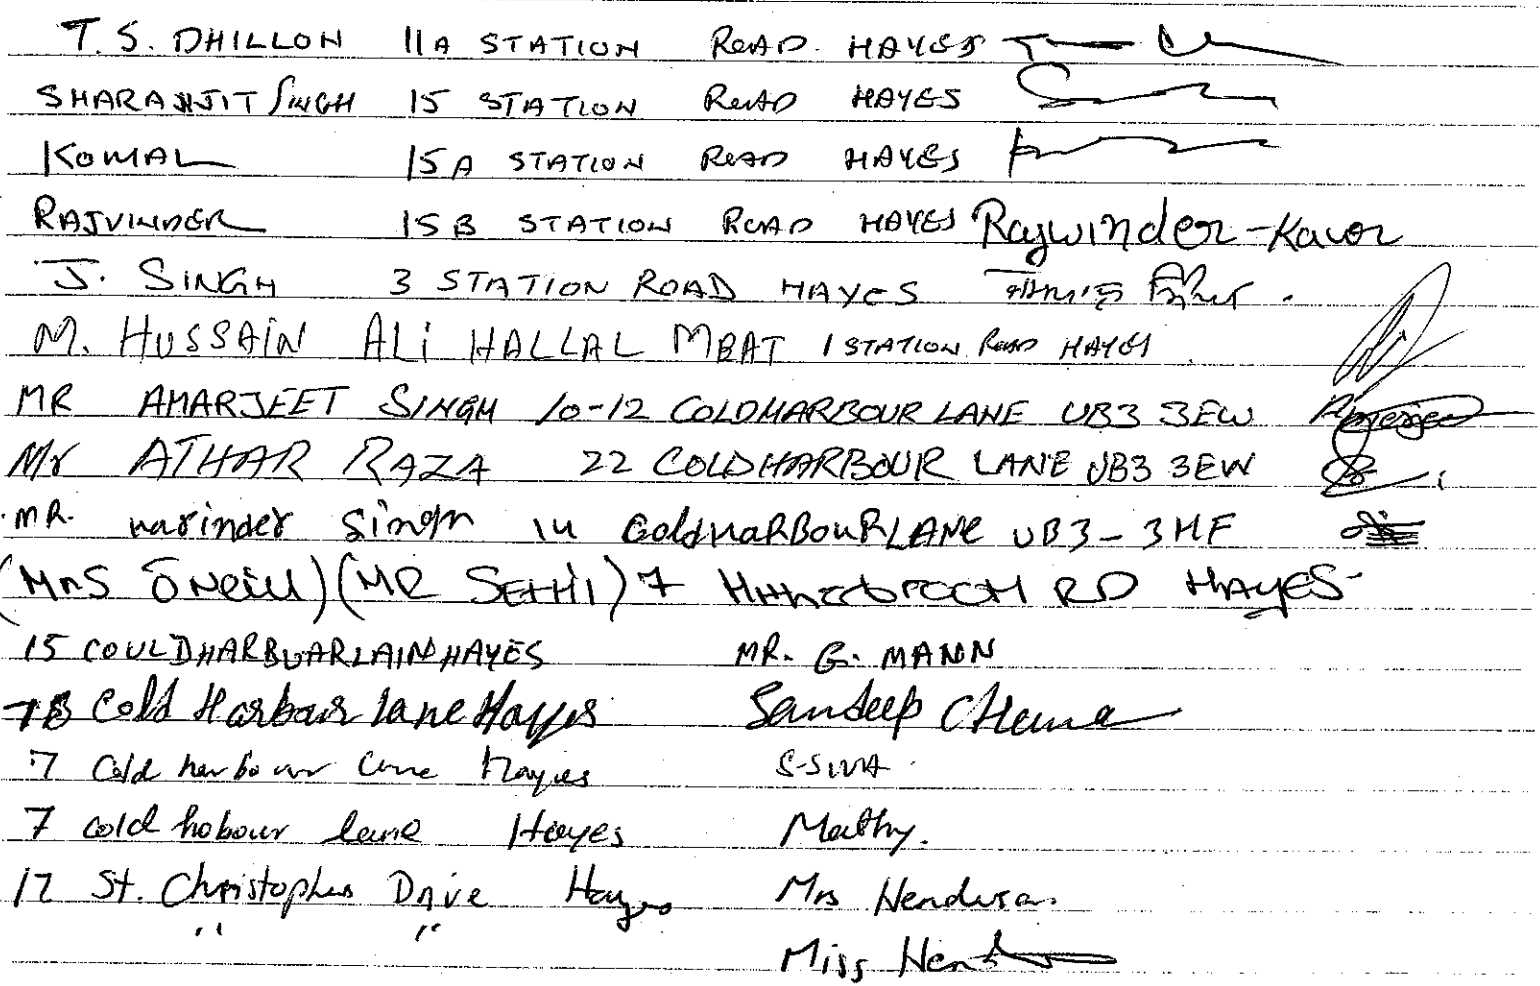 T. S. DHILLON 11A STATION ROAD HAYES
SHARANJIT SINGH 15 STATION ROAD HAYES
KOMAL 15A STATION ROAD HAYES
RAJVINDER 15B STATION ROAD HAYES Rajwinder-Kaur
J. SINGH 3 STATION ROAD HAYES
M. HUSSAIN ALi HALLAL MEAT 1 STATION ROAD HAYES
MR AMARJEET SINGH 10-12 COLDHARBOUR LANE UB3 3EW
Mr ATHAR RAZA 22 COLDHARBOUR LANE UB3 3EW
MR. narinder Singh 14 ColdHARBOUR LANE UB3-3HF
(MRS ONeill) (MR SETHI) 7 RD HAYES
15 COULDHARBUARLAINHAYES MR. G. MANN
Cold Harbour lane Hayes Sandeep
7 Cold harbour Lane Hayes S-SIVA
7 cold hobour lane Hayes Mathy.
17 St. Christopher Drive Hayes Mrs
" " Miss